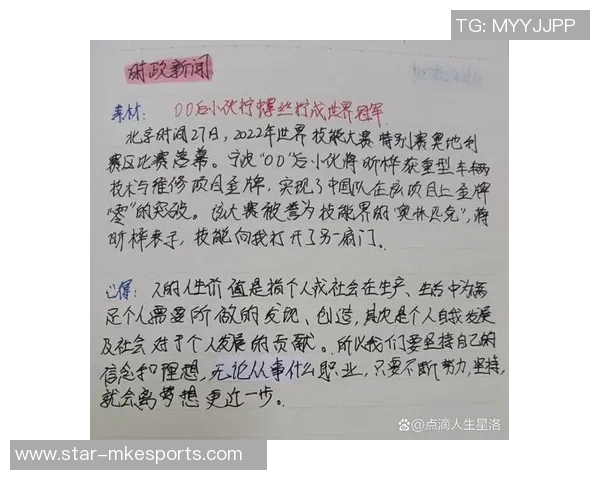 TG: MYYJJPP
时政新闻
素材: 00后小伙拧螺丝拧成世界冠军
北京时间27日,2022年世界技能大赛特别赛奥地利
赛区比赛落幕。宁波"00"后小伙蒋昕桦获重型车辆
技术与维修项目金牌,实现了中国队在该项目上金牌
"零"的突破。该大赛被誉为技能界的"奥林匹克",蒋
昕桦表示,技能向我打开了另一扇门。
心得: 人的人生价值是指个人或社会在生产、生活中为满
足个人需要所做的发现、创造,其次是个人自我发展
及社会对于个人发展的贡献。所以我们要坚持自己的
信念和理想,无论从事什么职业,只要不断努力,坚持,
就会离梦想更近一步。
www.star-mkesports.com
@点滴人生星洛